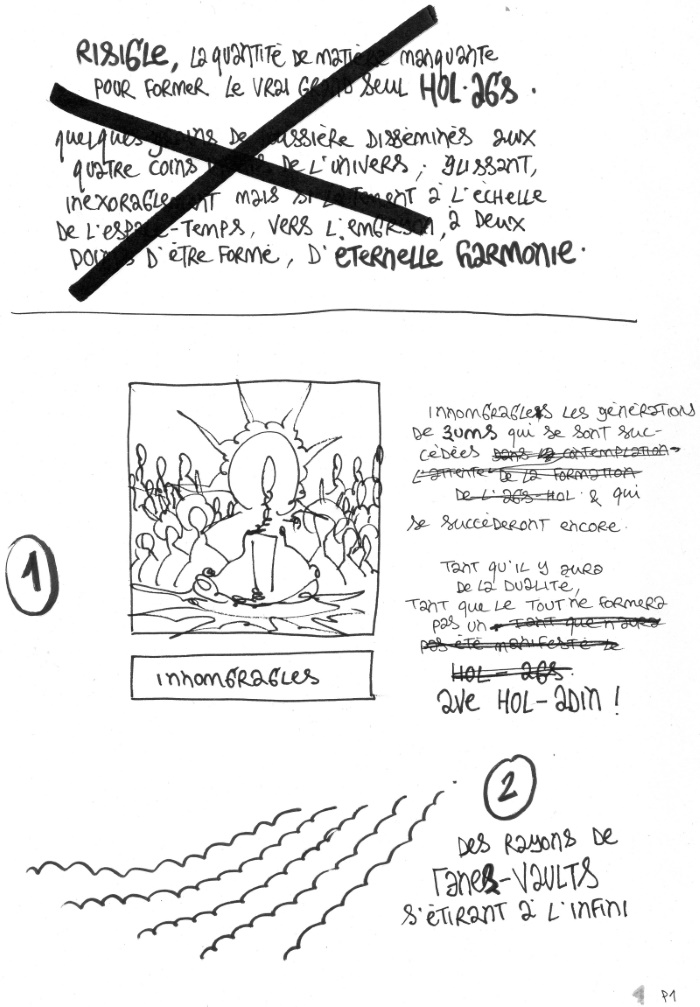 RISIBLE, LA QUANTITÉ DE MATIÈRE MANQUANTE
POUR FORMER LE VRAI GRAND SEUL HOL·ABS.
QUELQUES GRAINS DE POUSSIÈRE DISSÉMINÉS AUX
QUATRE COINS DE L'UNIVERS; GLISSANT,
INEXORABLEMENT MAIS SI LENTEMENT À L'ÉCHELLE
DE L'ESPACE-TEMPS, VERS L'EMBRYON, À DEUX
POINTS D'ÊTRE FORMÉ, D'ETERNELLE HARMONIE.
1
INNOMBRABLES LES GÉNÉRATIONS
DE ZUMS QUI SE SONT SUC-
CÉDÉES DANS LA CONTEMPLATION
L'ATTENTE DE LA FORMATION
DE L'ABS-HOL & QUI
SE SUCCÈDERONT ENCORE.
TANT QU'IL Y AURA
DE LA DUALITÉ,
TANT QUE LE TOUT NE FORMERA
PAS UN TANT QUE N'AURA
PAS ÉTÉ MANIFESTÉ LE
HOL-ABS.
AVE HOL-ADIN!
INNOMBRABLES
2
DES RAYONS DE
TANES-VAULTS
S'ÉTIRANT À L'INFINI
P1